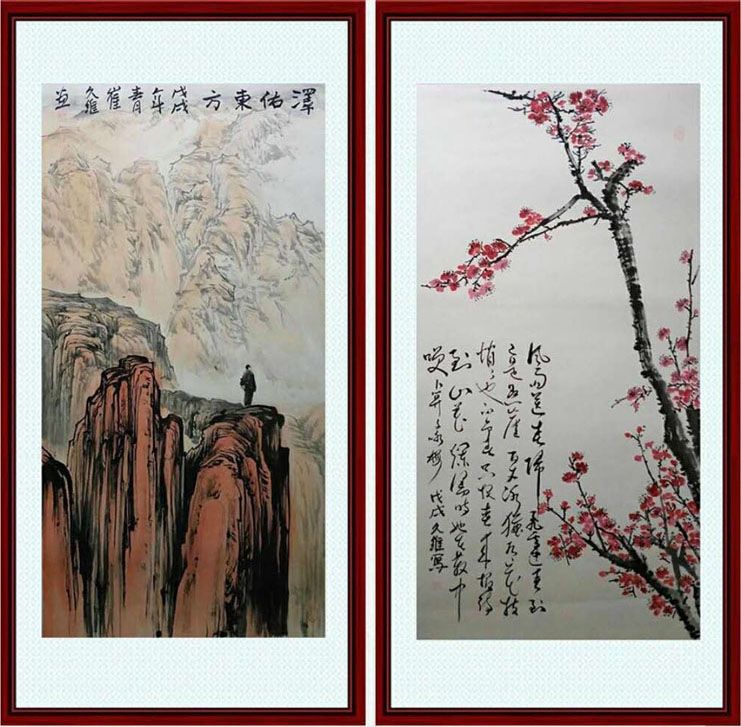 澤佑東方戊戌年青崔久維画
風雨送春歸飛雪迎春到
已是懸崖百丈冰猶有花枝
俏俏也不爭春只把春來報待
到山花爛漫時她在叢中
笑卜算子詠梅戊戌久維寫